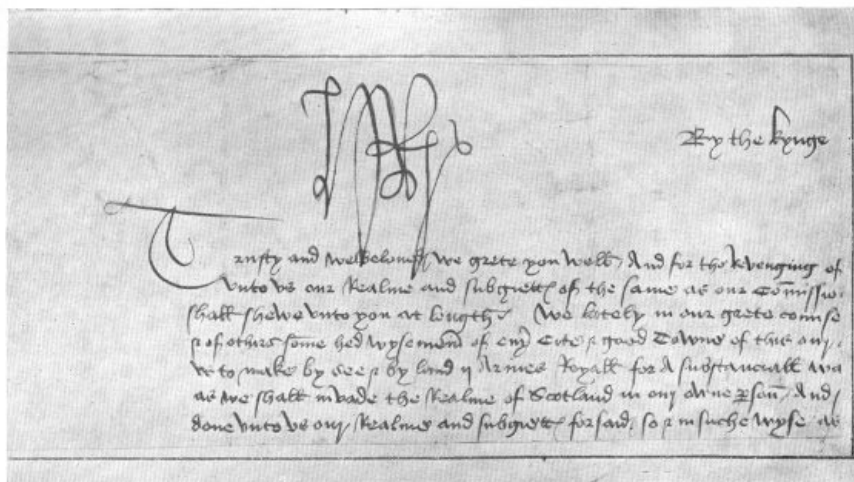 By the kynge
Trusty and welbeloved we grete you well And for the Revenging of
unto us our Realme and subgiettes of the same as our Comissio
shall shewe unto you at length We lately in our grete counse
& of othirs some hed wysemen of eny Cite & good Towne of this our
us to make by See & by land ij Armes Royall for A substanciall
as we shall invade the Realme of Scotland in our owne person And
done unto us our Realme and subgiettes forsaid so & in suche wyse as